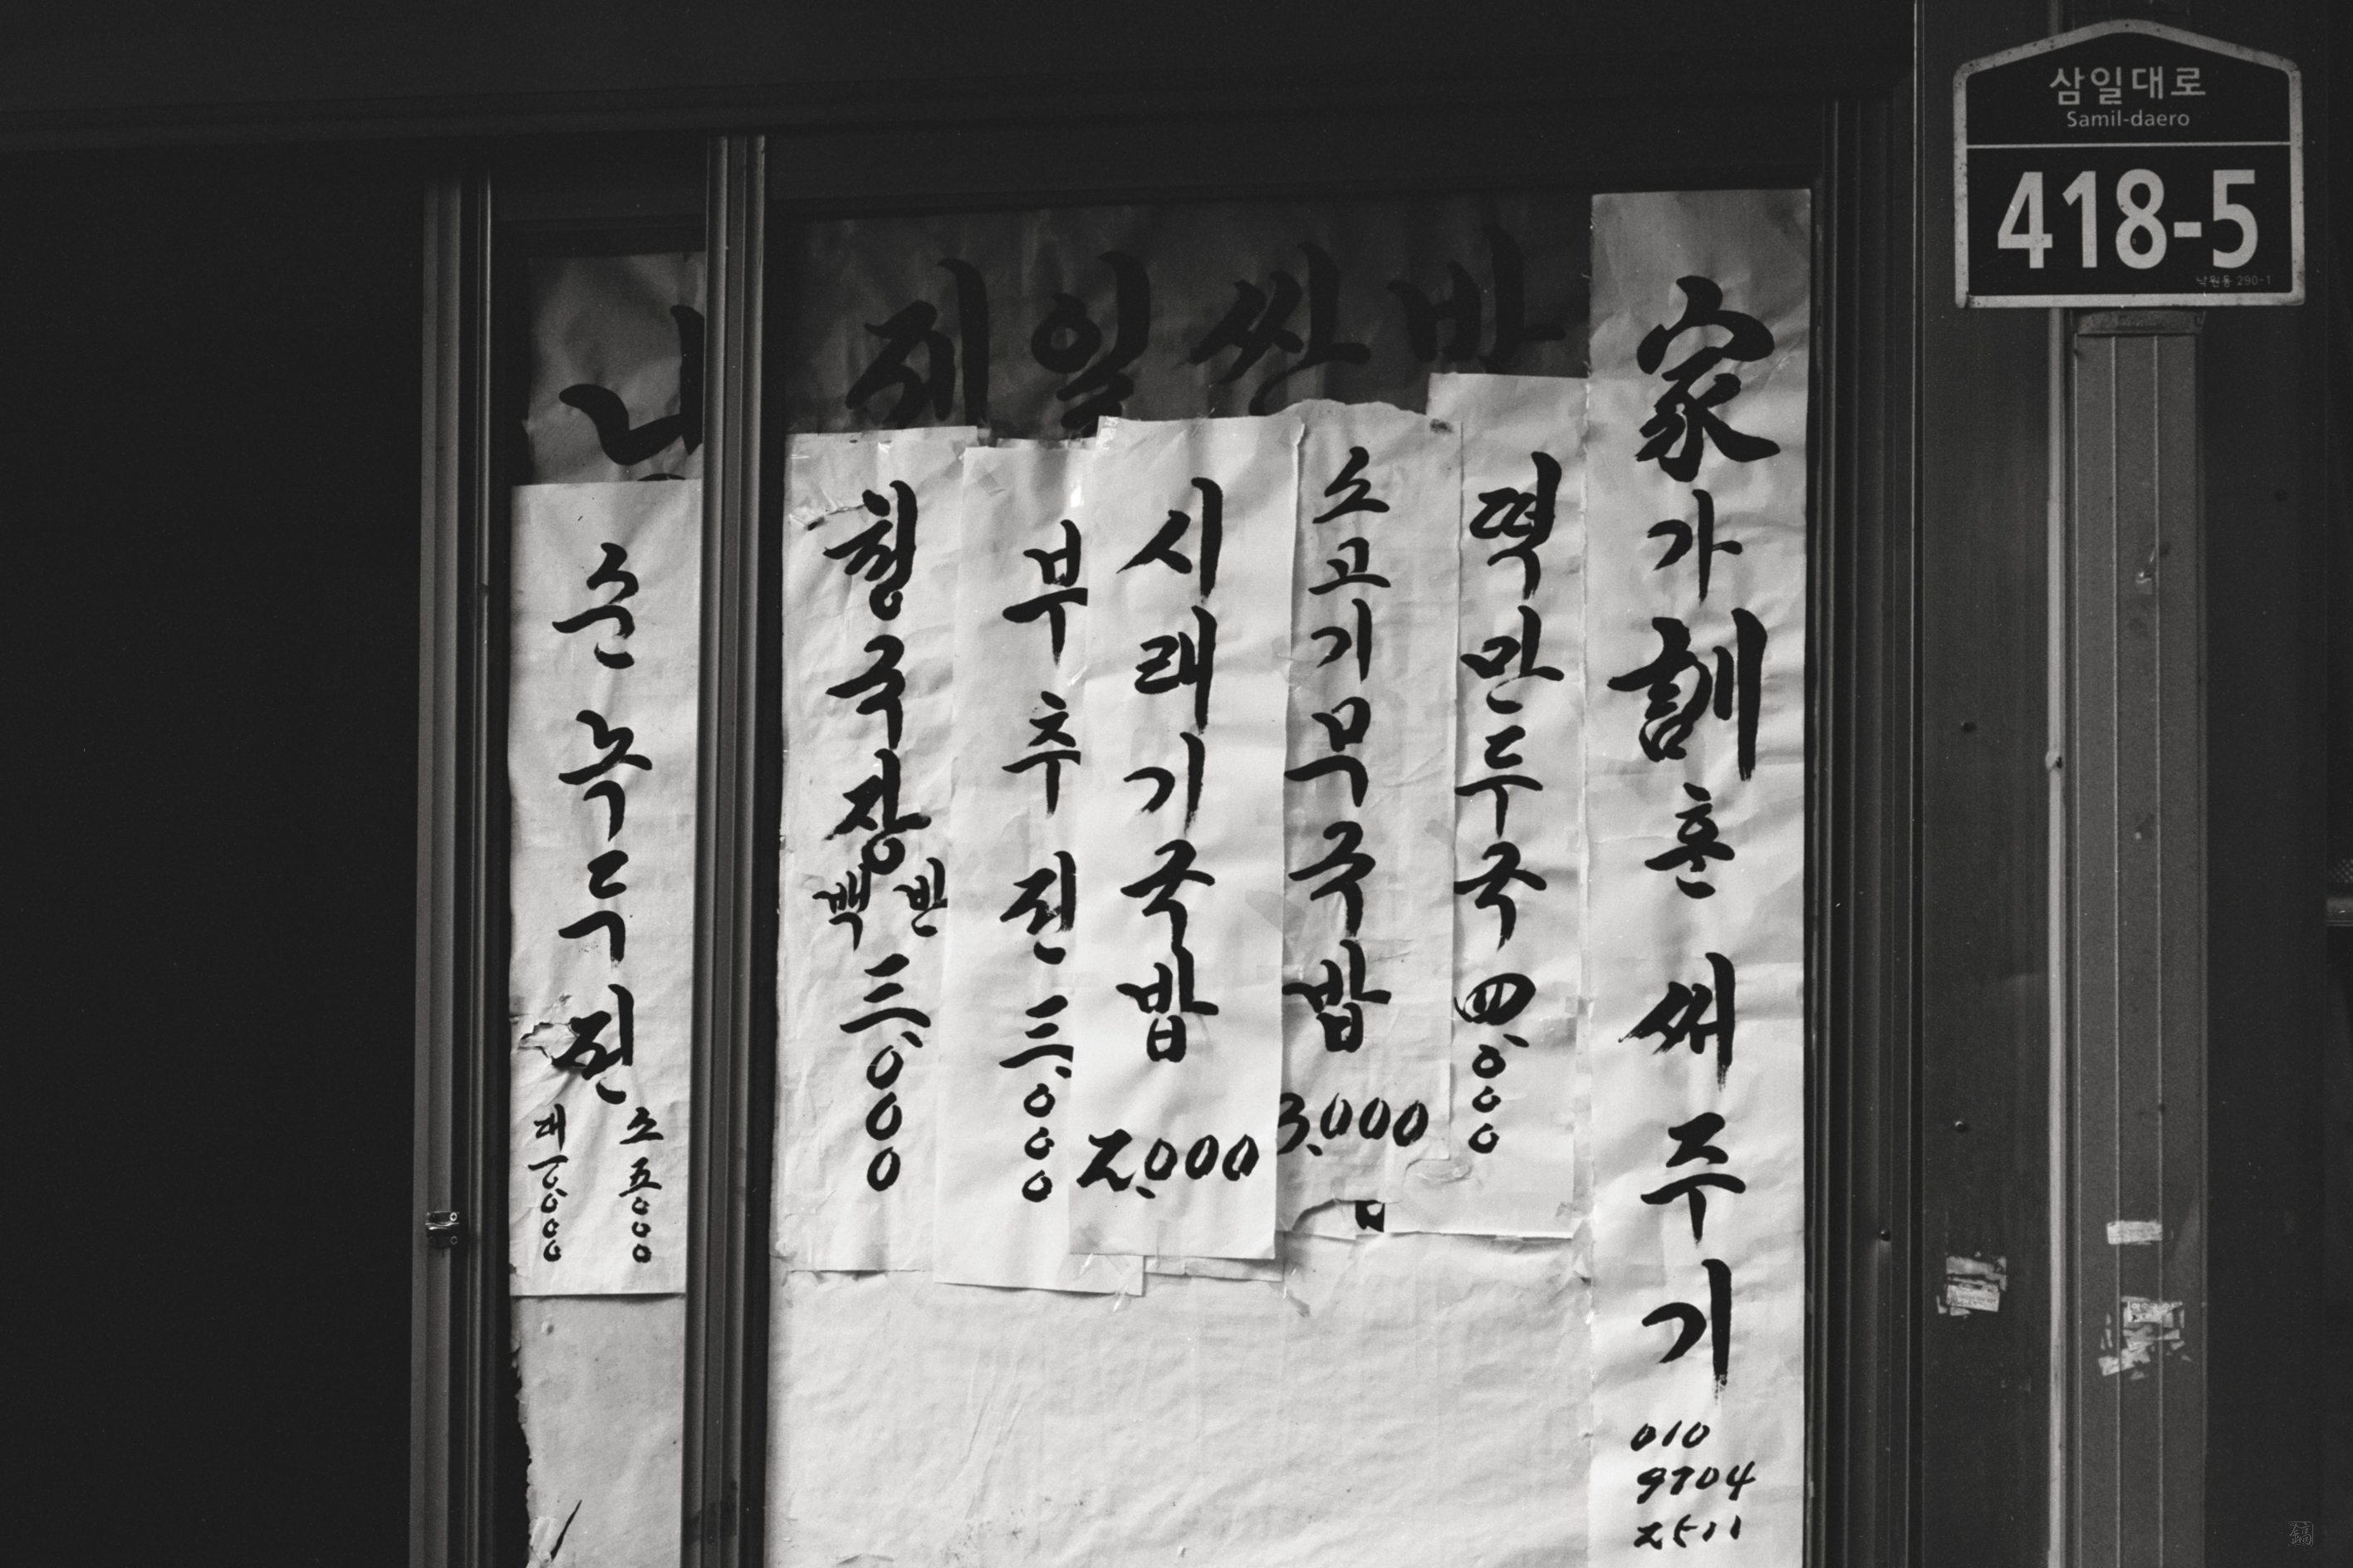 삼일대로
Samil-daero
418-5
낙원동 290-1
제일싼
家가訓훈 써주기
010
9704
2511
떡만두국 四,000
소고기무국밥 3,000
시래기국밥 2,000
부추전 三,000
청국장 백반 三,000
순녹두전
소 五000
대 一0,000